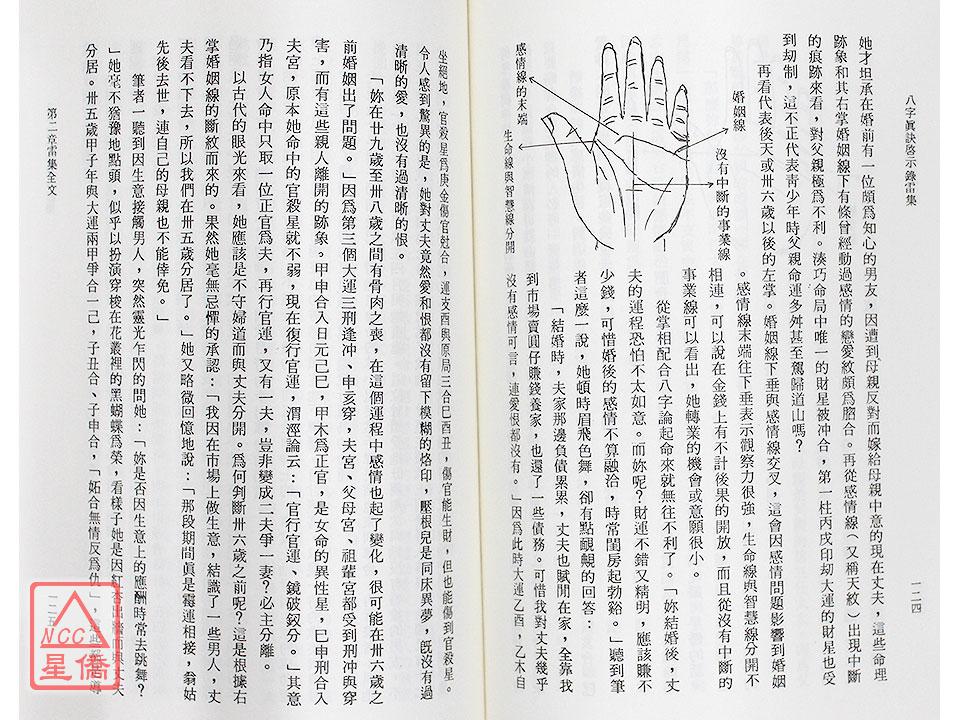 八字眞訣啓示錄雷集
一二四
她才坦承在婚前有一位頗爲知心的男友，因遭到母親反對而嫁給母親中意的現在丈夫，這些命理
跡象和其右掌婚姻線下有條曾經動過感情的戀愛紋頗爲脗合。再從感情線（又稱天紋）出現中斷
的痕跡來看，對父親極爲不利。湊巧命局中唯一的財星被冲合，第一柱丙戌印刧大運的財星也受
到刧制，這不正代表靑少年時父親命運多舛甚至駕歸道山嗎？
再看代表後天或卅六歲以後的左掌。婚姻線下垂與感情線交叉，這會因感情問題影響到婚姻
。感情線末端往下垂表示觀察力很强，生命線與智慧線分開不
相連，可以說在金錢上有不計後果的開放，而且從沒有中斷的
事業線可以看出，她轉業的機會或意願很小。
從掌相配合八字論起命來就無往不利了。「妳結婚後，丈
夫的運程恐怕不太如意。而妳呢？財運不錯又精明，應該賺不
少錢，可惜婚後的感情不算融洽，時常閨房起勃谿。」聽到筆
者這麼一說，她頓時眉飛色舞，卻有點靦覥的回答：
「結婚時，夫家那邊負債累累，丈夫也賦閒在家，全靠我
到市場賣圓仔賺錢養家，也還了一些債務。可惜我對丈夫幾乎
沒有感情可言，連愛恨都沒有。」因爲此時大運乙酉，乙木自
婚姻線
沒有中斷的事業線
感情線的末端
生命線與智慧線分開
坐絕地，官殺星爲庚金傷官尅合，運支酉與原局三合巳酉丑，傷官能生財，但也能傷到官殺星。
令人感到驚異的是，她對丈夫竟然愛和恨都沒有留下模糊的烙印，壓根兒是同床異夢，旣沒有過
清晰的愛，也沒有過清晰的恨。
「妳在廿九歲至卅八歲之間有骨肉之喪，在這個運程中感情也起了變化，很可能在卅六歲之
前婚姻出了問題。」因爲第三個大運三刑逢冲、申亥穿，夫宮、父母宮、祖輩宮都受到刑冲與穿
害，而有這些親人離開的跡象。甲申合入日元己巳，甲木爲正官，是女命的異性星，巳申刑合入
夫宮，原本她命中的官殺星就不弱，現在復行官運，渭涇論云：「官行官運、鏡破釵分。」其意
乃指女人命中只取一位正官爲夫，再行官運，又有一夫，豈非變成二夫爭一妻？必主分離。
以古代的眼光來看，她應該是不守婦道而與丈夫分開。爲何判斷卅六歲之前呢？這是根據右
掌婚姻線的斷紋而來的。果然她毫無忌憚的承認：「我因在市場上做生意，結識了一些男人，丈
夫看不下去，所以我們在卅五歲分居了。」她又略微回憶地說：「那段期間眞是霉運相接，翁姑
先後去世，連自己的母親也不能倖免。」
筆者一聽到因生意接觸男人，突然靈光乍閃的問她：「妳是否因生意上的應酬時常去跳舞？
」她毫不猶豫地點頭，似乎以扮演穿梭在花叢裡的黑蝴蝶爲榮，看樣子她是因紅杏出牆而與丈夫
分居。卅五歲甲子年與大運兩甲爭合一己，子丑合、子申合，「妬合無情反爲仇」，這些
第二章雷集全文
一二五
NCC
星僑